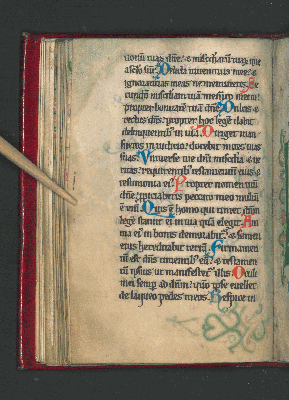 uonū tuaꝝ dñe: & miſcďiaꝝ tuaꝝ que
a ſclo ſūt. Delicta iuuentutis mee: &
ignorantias meas ne memineris. Se
cundū miſcďiam tuā memento mei tu:
propter bonitatē tuā dñe. Dulcis &
rectus dñs: propter hoc legē dabit
delinquentib; in uia. Diriget man
ſuetos in iudicio: docebit mites uias
ſuas. Vniuerſe uie dñi miſcďia & ue
ritas: requirentib; teſtamentū eius &
teſtimonia ei. Propter nomen tuū
dñe: propitiaberis peccato meo multū
ē eni. Quis ē homo qui timet dñm
legē ſtatuit ei in uia quā elegit. Ani
ma ei in bonis demorabit: & ſemen
eius hereditabit terrā. Firmamen
tū eſt dñs timentib; eū: & teſtamen
tū ipſius ut manifeſtet illis. Oculi
mei ſemp ad dñm: qm̄ ipſe euellet
de laqueo pedes meos. Reſpice in